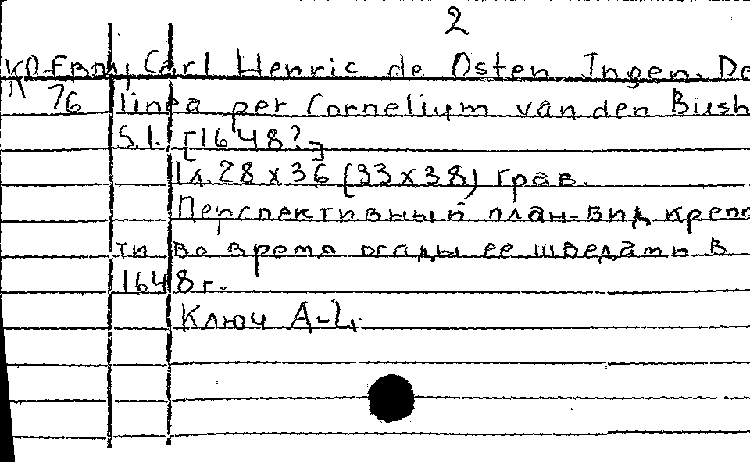 2
КО-Евр Carl Henric de Osten Ingen. De
п 76 linea per Cornelium van den Bush
S. l. [1648?]
1 л. 28 х 36 (33 х 38) грав.
Перспективный план-вид крепос
ти во время осады ее шведами в
1648 г.
Ключ А-